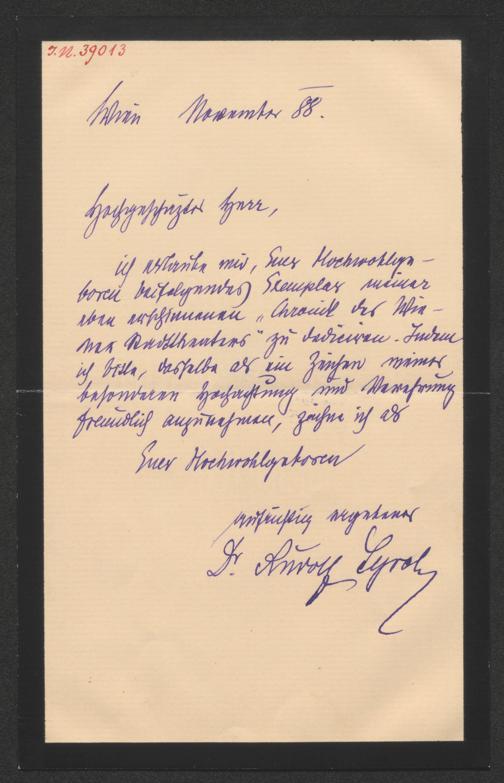 J.N. 39013
Wien November 88.
Hochgeschätzter Herr,
ich erlaube mir, Euer Hochwohlge-
boren beifolgendes Exemplar meiner
eben erschienenen „Chronik des Wie-
ner Stadttheaters" zu dediciren. Indem
ich bitte, dasselbe als ein Zeichen meiner
besonderen Hochachtung und Verehrung
freundlich anzunehmen, zeichne ich als
Euer Hochwohlgeboren
aufrichtig ergebener
Dr. Rudolf Tyrolt